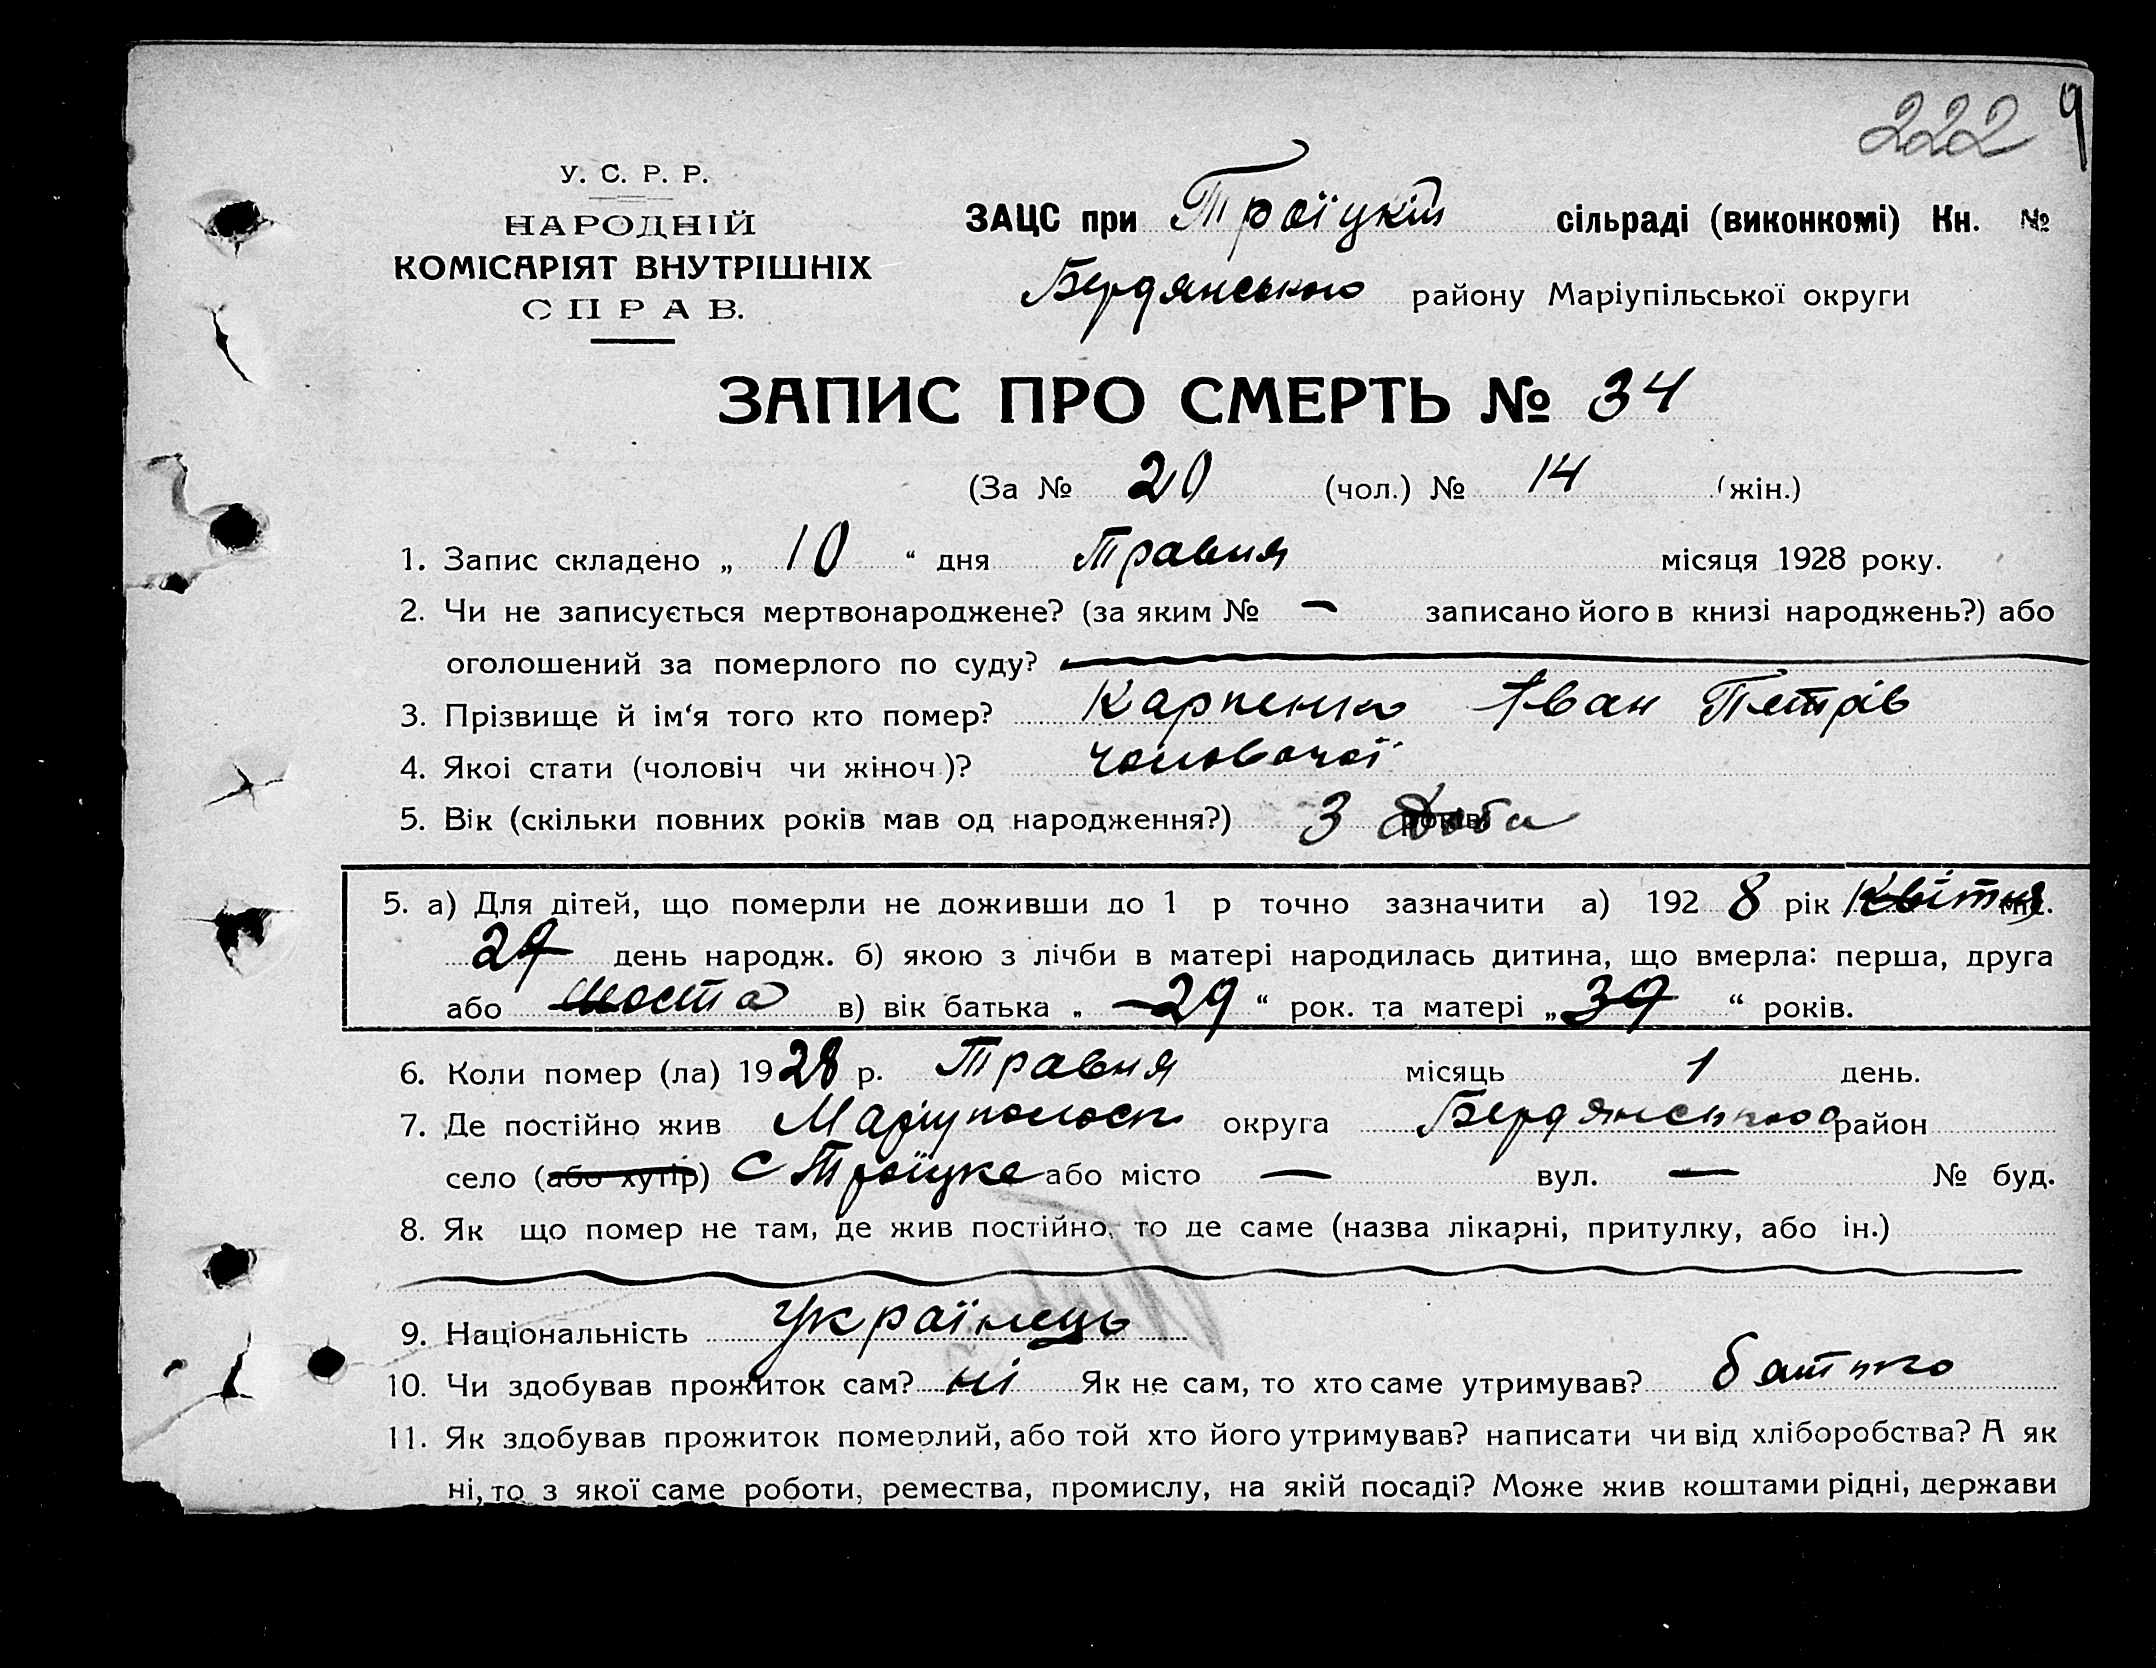 222 9
У. С. Р. Р.
НАРОДНІЙ
КОМІСАРІЯТ ВНУТРІШНІХ
СПРАВ.
ЗАЦС при Троїцкій сільраді (виконкомі) Кн. №
Бердянського району Маріупільської округи
ЗАПИС ПРО СМЕРТЬ № 34
(За № 20 (чол.) № 14 (жін.)
1. Запис складено „ 10 “ дня Травня місяця 1928 року.
2. Чи не записується мертвонароджене? (за яким № — записано його в книзі народжень?) або
оголошений за померлого по суду?
3. Прізвище й ім‘я того кто помер? Карпенко Іван Петрів
4. Якоі стати (чоловіч чи жіноч.)? чоловочої
5. Вік (скільки повних років мав од народження?) 3 доба
5. а) Для дітей, що померли не доживши до 1 р точно зазначити а) 1928 рік Квітня міс.
день народж. б) якою з лічби в матері народилась дитина, що вмерла: перша, друга
або шоста в) вік батька „ 29 “ рок. та матері „ 39 “ років.
6. Коли помер (ла) 1928 р. Травня місяць 1 день.
7. Де постійно жив округа Бердянського район
село (або хутір) С Троїцке або місто — вул. — № буд.
8. Як що помер не там, де жив постійно, то де саме (назва лікарні, притулку, або ін.)
9. Національність Українець
10. Чи здобував прожиток сам? ні Як не сам, то хто саме утримував? батько
11. Як здобував прожиток померлий, або той хто його утримував? написати чи від хліборобства? А як
ні, то з якої саме роботи, ремества, промислу, на якій посаді? Може жив коштами рідні, держави